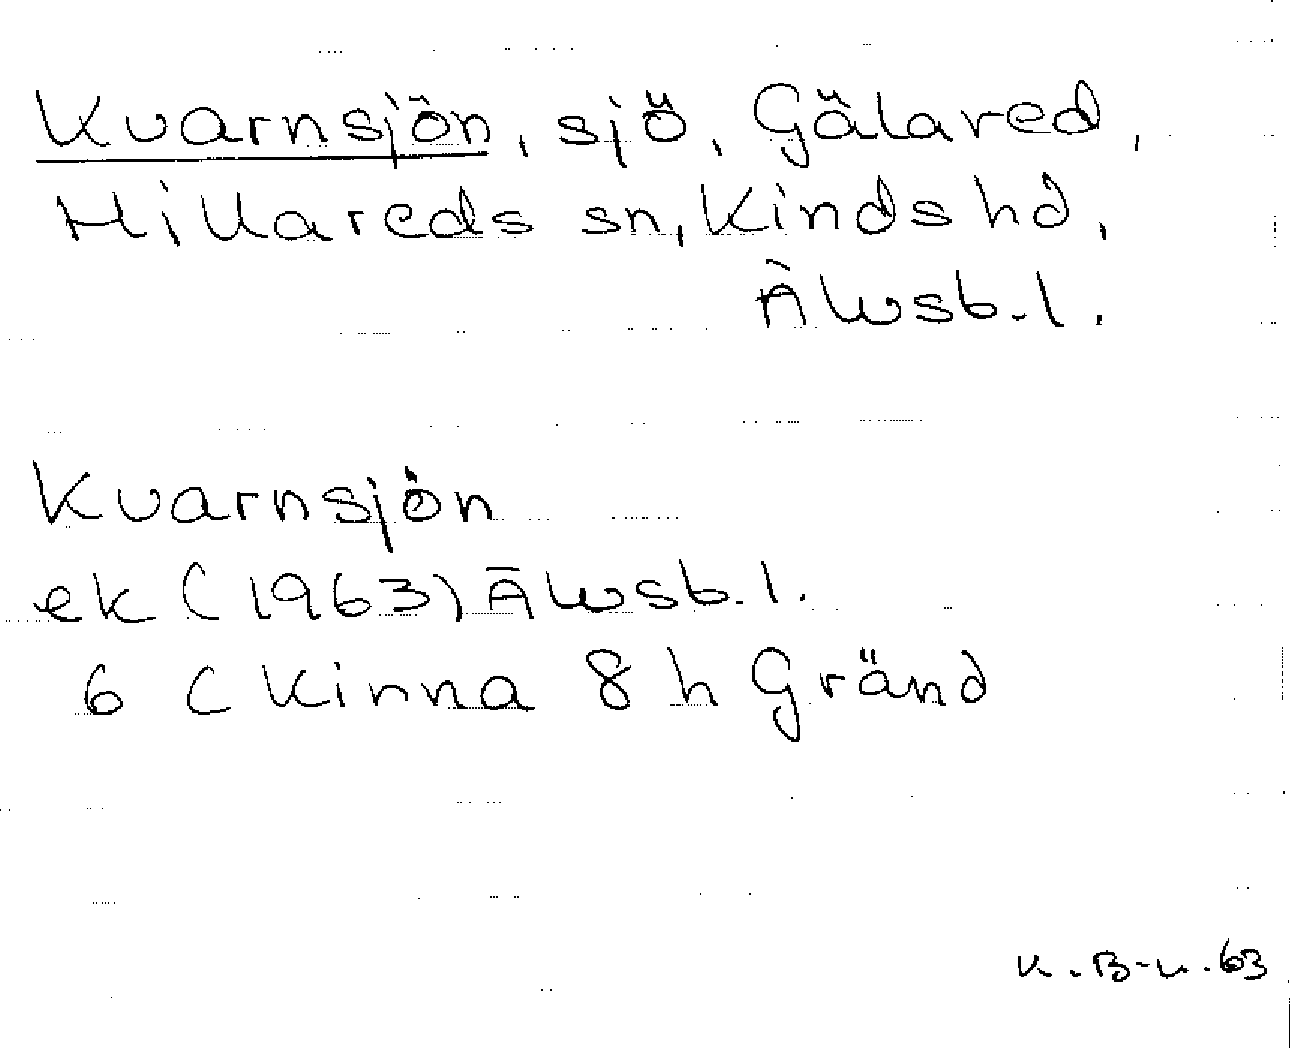 Kvarnsjön, sjö, Gälared,
Hillareds sn, Kinds hd,
Älvsb. l.
Kvarnsjön
ek (1963) Älvsb. l.
6 C Kinna 8 h Gränd